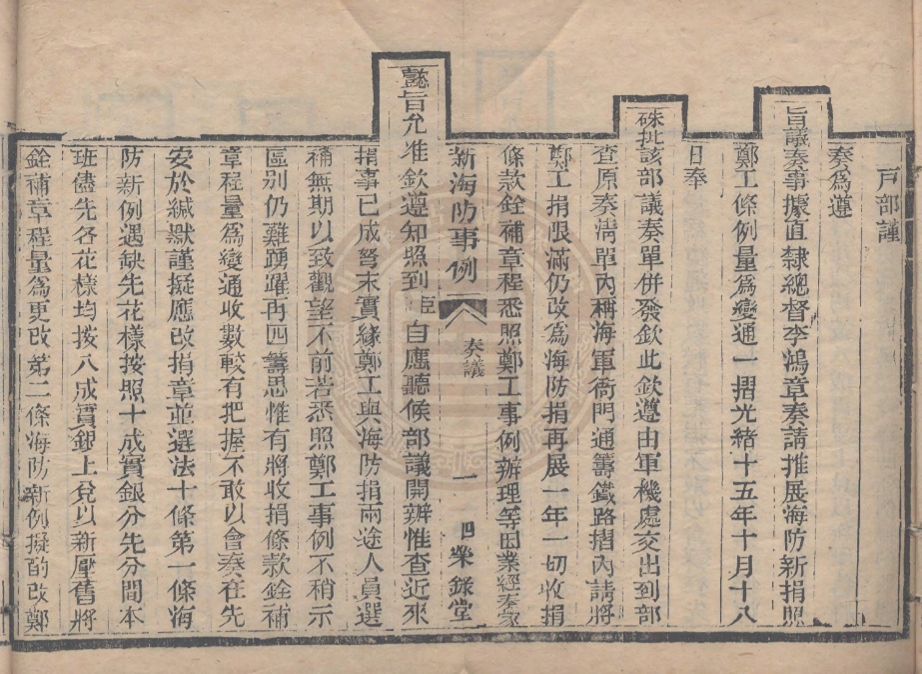 戶部謹
奏爲遵
旨議奏事據直隸總督李鴻章奏請推展海防新捐照
鄭工條例量爲變通一摺光緒十五年十月十八
日奉
硃批該部議奏單併發欽此欽遵由軍機處交出到部
查原奏淸單內稱海軍衙門通籌鐵路摺內請將
鄭工捐限滿仍改爲海防捐再展一年一切收捐
條款銓補章程悉照鄭工事例辦理等因業經奏蒙
新海防事例 奏議 一 榮錄堂
懿旨允准欽遵知照到臣自應聽候部議開辦惟查近來
捐事已成弩末實緣鄭工與海防捐兩途人員選
補無期以致觀望不前若悉照鄭工事例不稍示
區別仍難踴躍再四籌思惟有將收捐條款銓補
章程量爲變通收數較有把握不敢以會奏在先
安於緘默謹擬應改捐章並選法十條第一條海
防新例遇缺先花樣按照十成實銀分先分間本
班儘先各花樣均按八成實銀上兌以新壓舊將
銓補章程量爲更改第二條海防新例擬酌改鄭